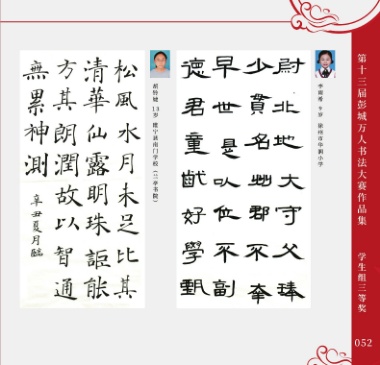 第十三届彭城万人书法大赛作品集
学生组三等奖
052
9岁 徐州市华润小学
尉北地大守父琫
少貫名州郡不幸
早世是以位不副
德君童齔好學甄
13岁 睢宁县南门学校
松風水月未足比其
清華仙露明珠詎能
方其朗潤故以智通
無累神測
辛丑夏月臨